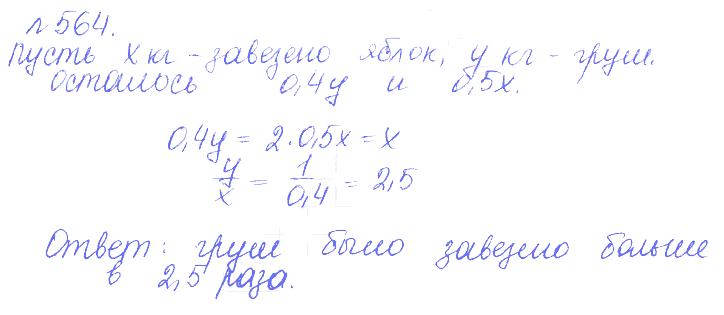 № 564.
Пусть x кг - завезено яблок, y кг - груш.
осталось 0,4y и 0,5x.
0,4y = 2·0,5x = x
y/x = 1/0,4 = 2,5
Ответ: груш было завезено больше
в 2,5 раза.